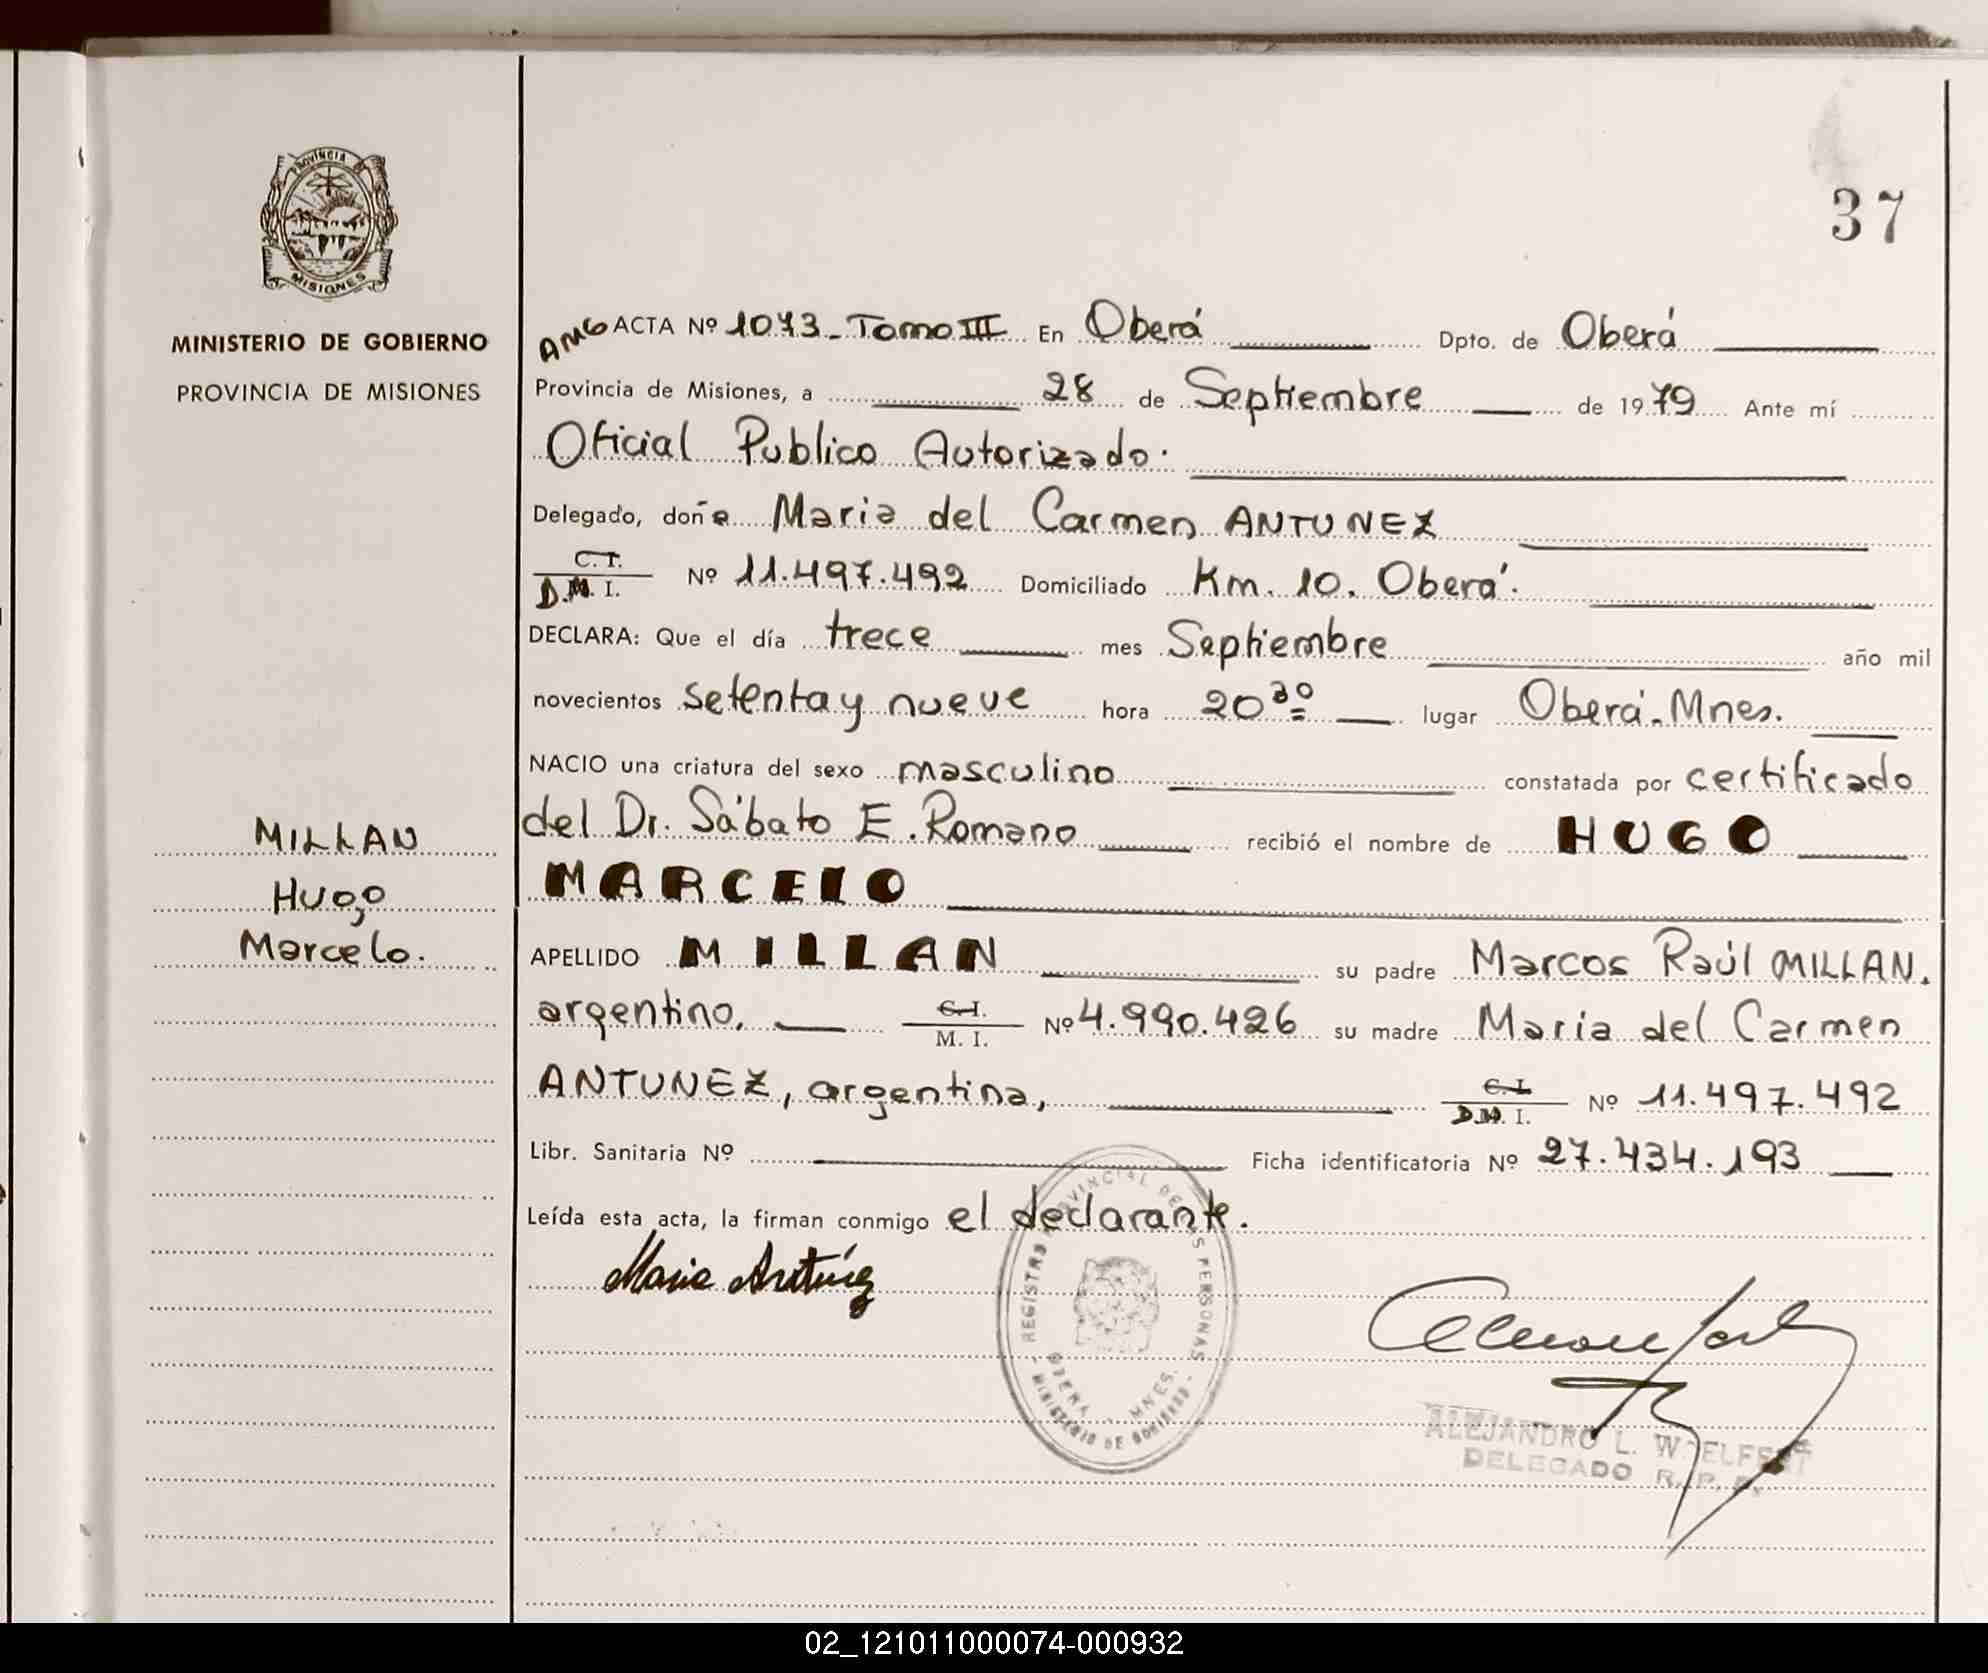 37
PROVINCIA
MISIONES
MINISTERIO DE GOBIERNO
PROVINCIA DE MISIONES
MILLAN
Hugo
Marcelo.
AMG ACTA Nº 1073-Tomo III En Oberá Dpto. de Oberá
Provincia de Misiones, a 28 de Septiembre de 1979 Ante mí
Oficial Publico Autorizado.
Delegado, doña Maria del Carmen ANTUNEZ
C. I.
D.N. I. Nº 11.497.492 Domiciliado Km. 10. Oberá.
DECLARA: Que el día trece mes Septiembre año mil
novecientos setenta y nueve hora 20 30 lugar Oberá-Mnes.
NACIO una criatura del sexo masculino constatada por certificado
del Dr. Sábato E. Romano recibió el nombre de HUGO
MARCELO
APELLIDO MILLAN su padre Marcos Raúl MILLAN.
argentino, C. I. / M. I. Nº 4.990.426 su madre Maria del Carmen
ANTUNEZ, argentina, C. I. / D.N. I. Nº 11.497.492
Libr. Sanitaria Nº Ficha identificatoria Nº 27.434.193
Leída esta acta, la firman conmigo el declarante.
Maria Antúnez
REGISTRO PROVINCIAL DE LAS PERSONAS
OBERA - MNES.
MINISTERIO DE GOBIERNO
ALEJANDRO L.
DELEGADO R. P. P.
02_121011000074-000932